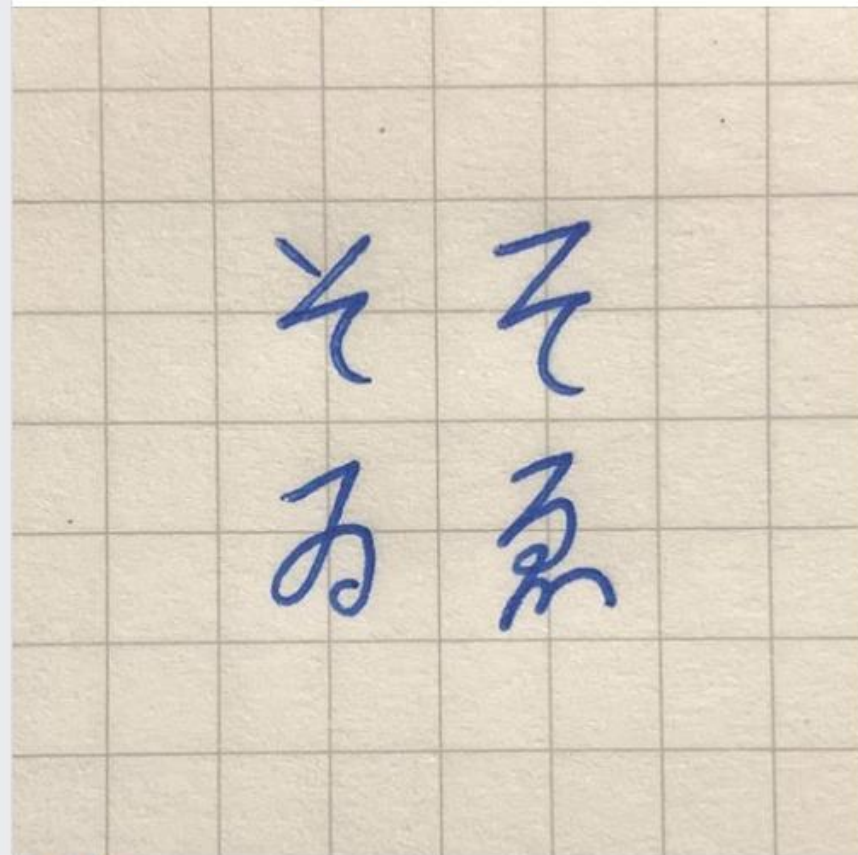 そ そ
ゐ ゑ